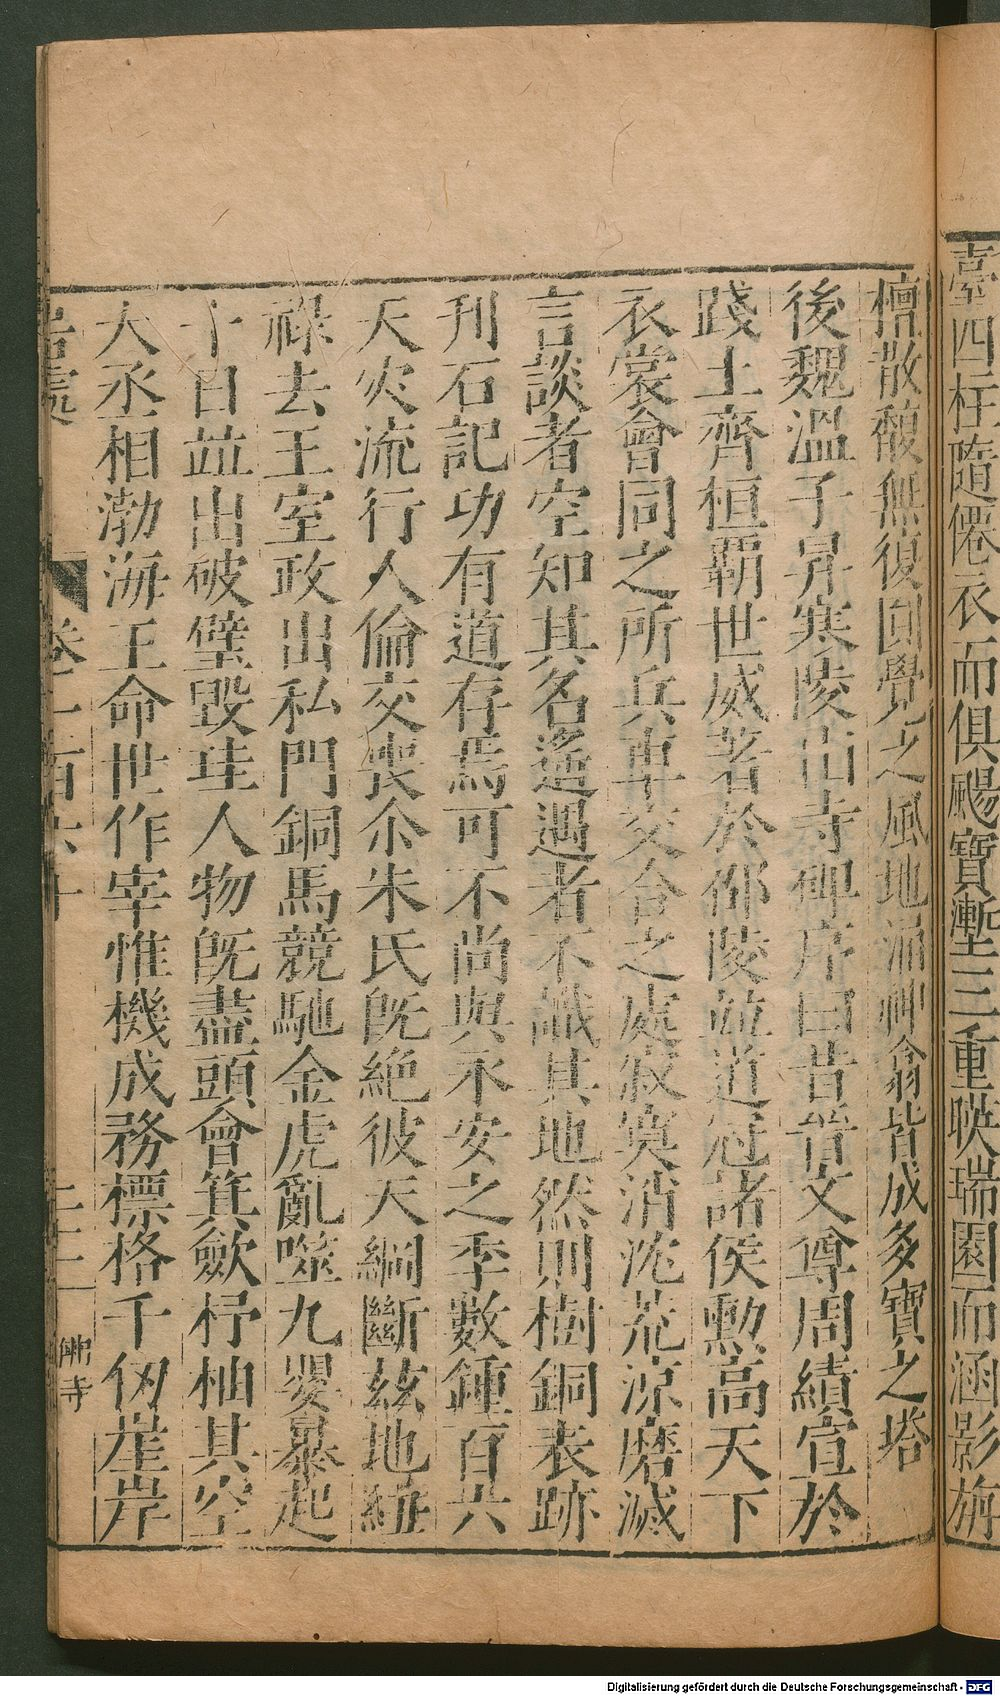 臺四柱隨僊衣而俱颺寶塹三重映瑞園而涵影旃
檀散馥無復回覺之風地涌神龕皆成多寶之塔
後魏溫子昇寒陵山寺碑序曰昔晉文尊周績宣於
踐土齊桓霸世威著於邵陵並道冠諸侯勲高天下
衣裳會同之所兵車交合之處寂寞消沈荒凉磨滅
言談者空知其名遙遇者不識其地然則樹銅表跡
刋石記功有道存焉可不尚與永安之季數鍾百六
天灾流行人倫交喪尒朱氏旣絶彼天綱斷兹地紐
祿去王室政出私門銅馬競馳金虎亂噬九嬰暴起
十日並出破璧毀珪人物旣盡頭會箕歛杼柚其空
大丞相渤海王命世作宰惟機成務標格千仞崖岸
卷二百六十
佛寺
Digitalisierung gefördert durch die Deutsche Forschungsgemeinschaft - DFG